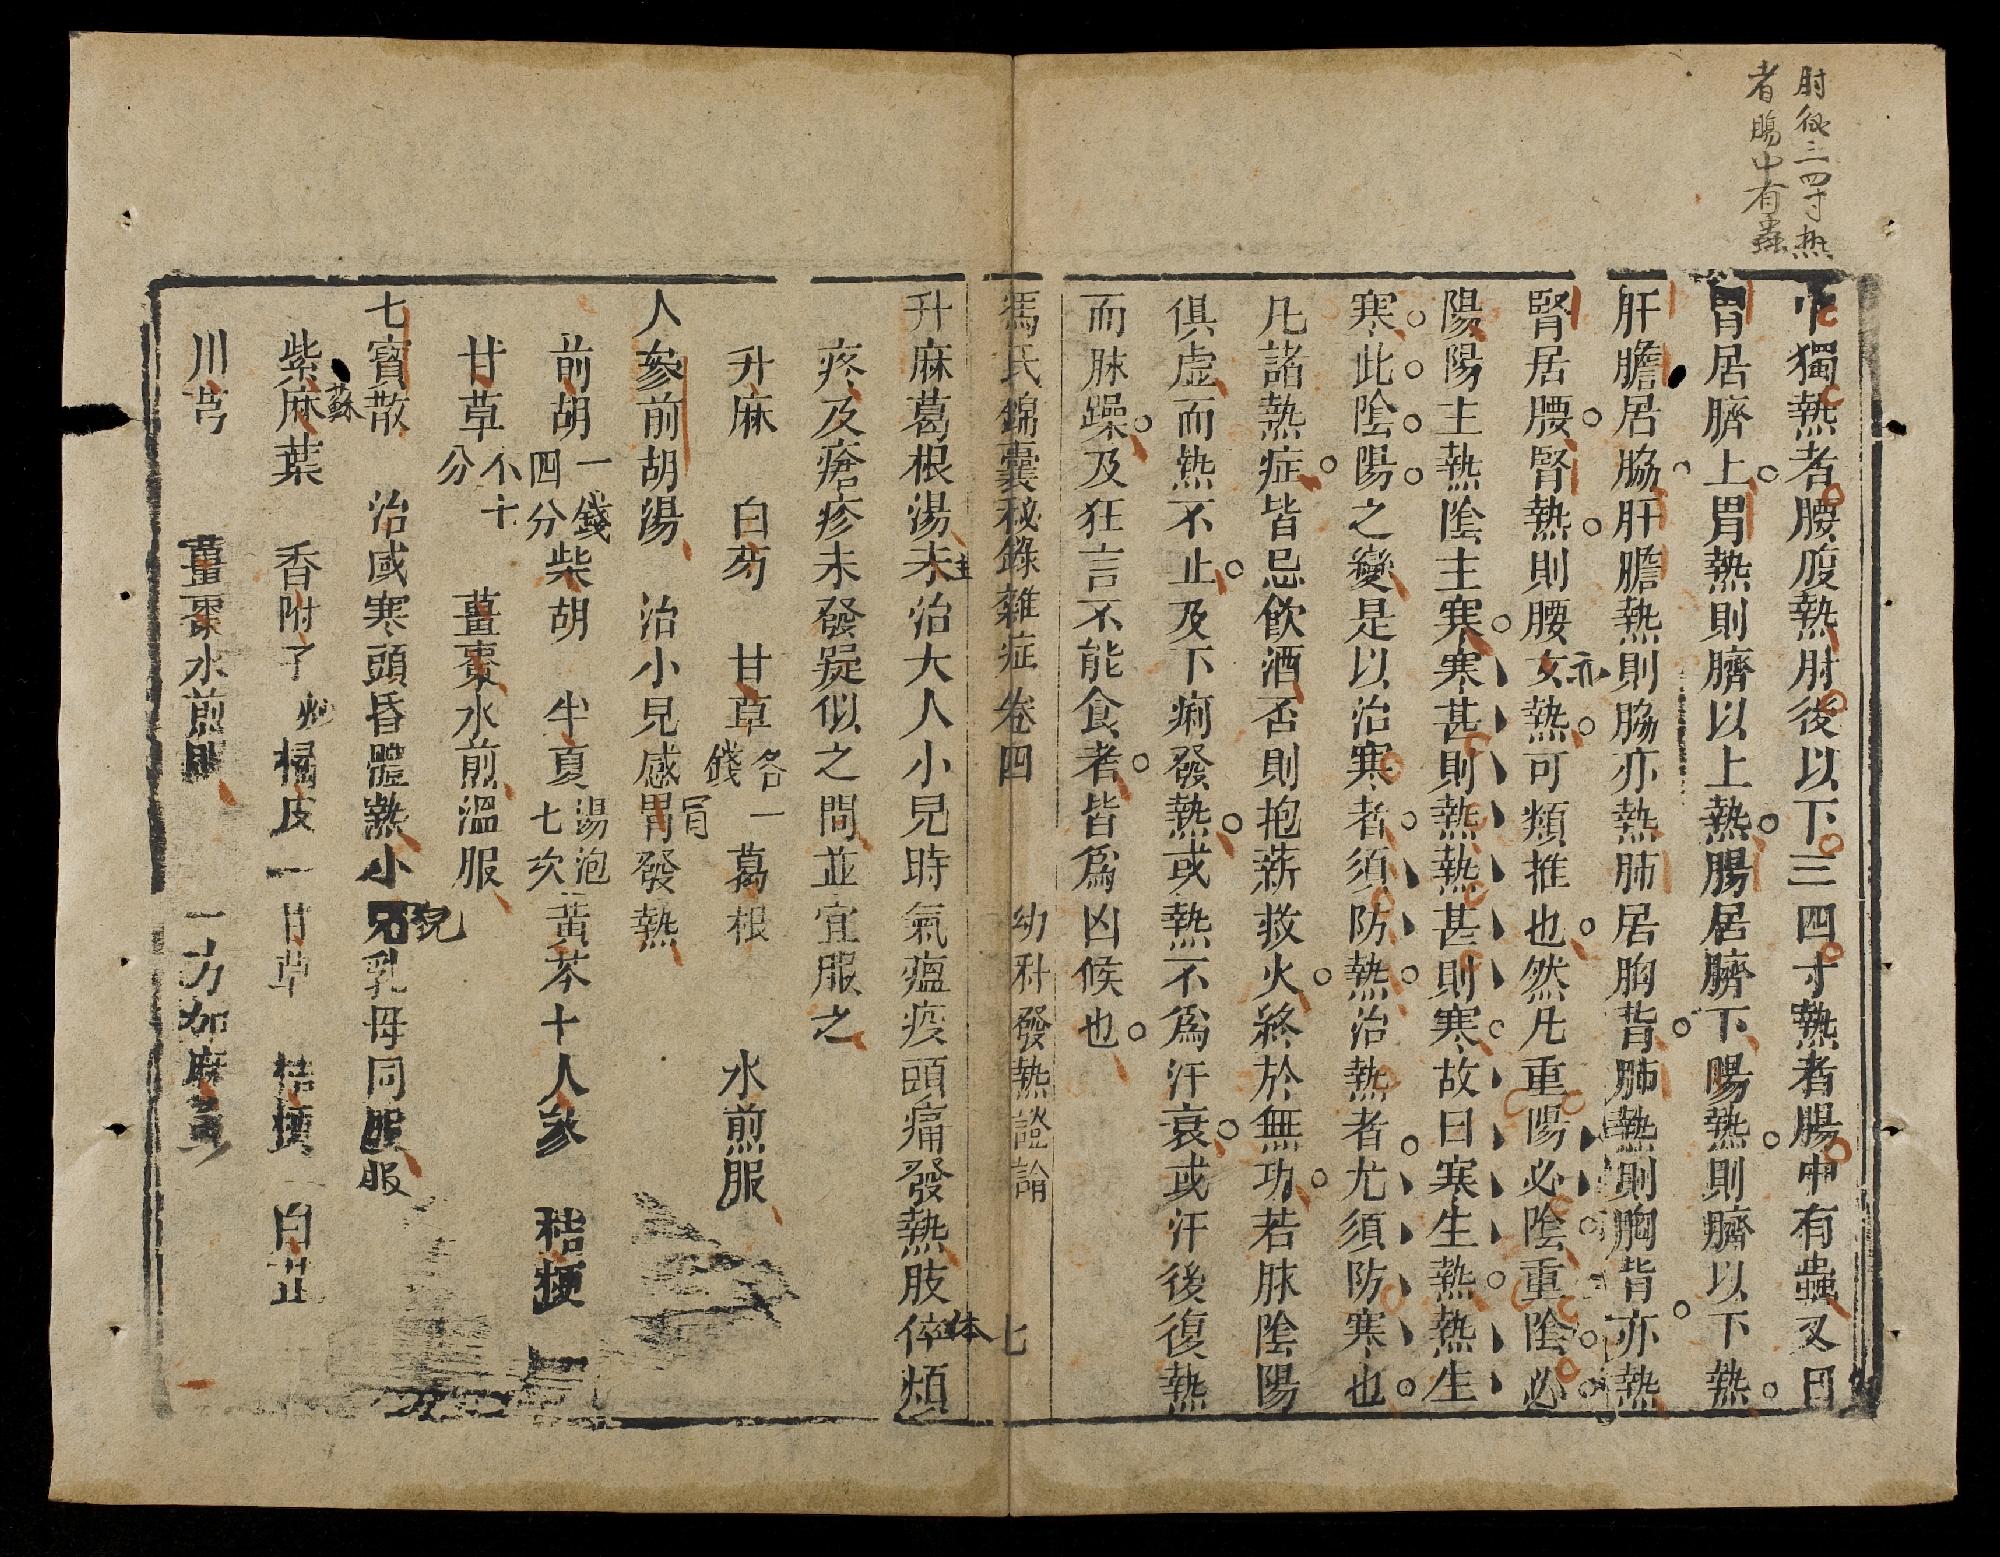 肘後三四寸热
者腸中有蟲
中獨熱者腰腹熱肘後以下三四寸熱者腸中有蟲又曰
胃居臍上胃熱則臍以上熱腸居臍下腸熱則臍以下熱
肝膽居脇肝膽熱則脇亦熱肺居胸背肺熱則胸背亦熱
腎居腰腎熱則腰女亦熱可類推也然凡重陽必陰重陰必
陽陽主熱陰主寒寒甚則熱熱甚則寒故曰寒生熱熱生
寒此陰陽之變是以治寒者須防熱治熱者尤須防寒也
凡諸熱症皆忌飲酒否則抱薪救火終於無功若脉陰陽
俱虛而熱不止及下痢發熱或熱不爲汗衰或汗後復熱
而脉躁及狂言不能食者皆爲凶候也
馮氏錦囊秘錄雜症卷四 幼科發熱證論 七
升麻葛根湯未主治大人小兒時氣瘟疫頭痛發熱肢倅体煩
疼及瘡疹未發疑似之間並宜服之
升麻 白芍 甘草各一錢 葛根 水煎服
人參前胡湯 治小兒感胃冐發熱
前胡一錢四分 柴胡 半夏湯泡七次 黃芩 十人參 桔梗
甘草不十分 薑棗水煎溫服
七寶散 治感寒頭昏體熱小兒乳母同服服
紫麻蘇葉 香附子炒 橘皮 甘草 桔梗 白芷
川芎 薑棗水煎服 一方加麻黃